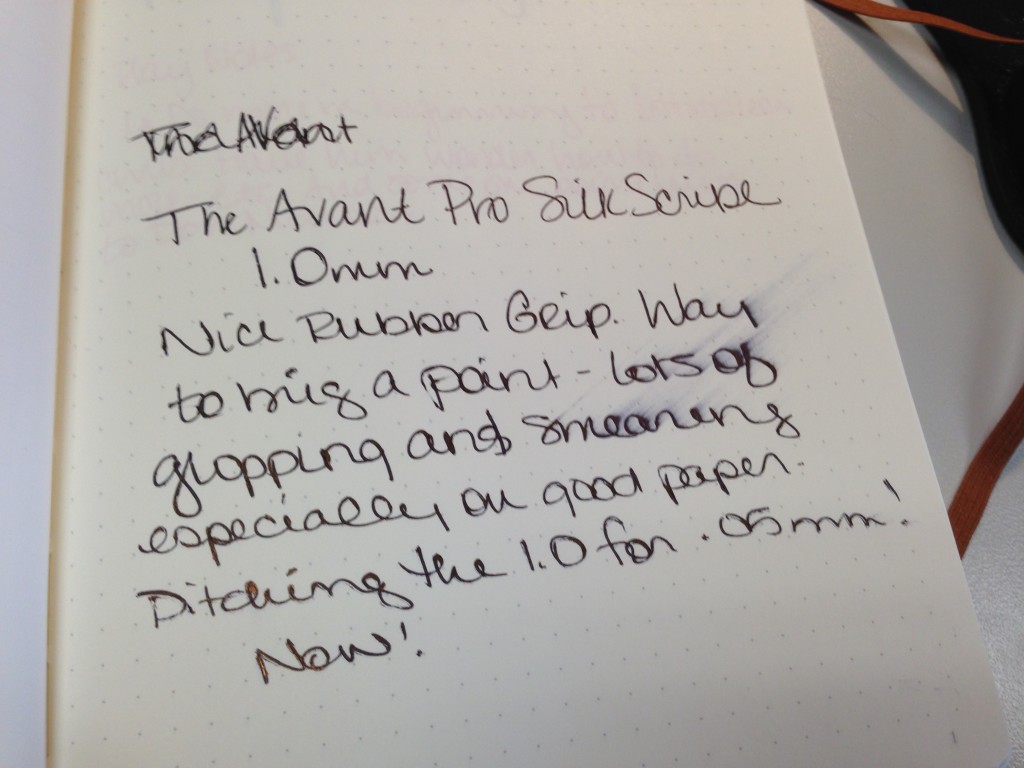 The Avant
The Avant Pro SilkScribe
1.0mm
Nice Rubber Grip. Way
to big a point - lots of
glopping and smearing
especially on good paper.
Ditching the 1.0 for .05mm!
Now!